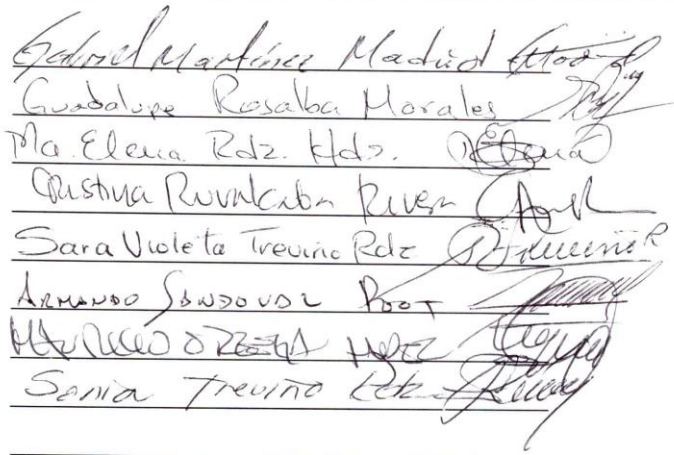 Gabriel Martínez Madrid
Guadalupe Rosalba Morales
Ma. Elena Rdz. Hdz. Elena
Cristina Ruvalcaba Rivera
Sara Violeta Treviño Rdz Treviño R
Armando Sandoval Root
Mauricio Ortega
Sonia Treviño